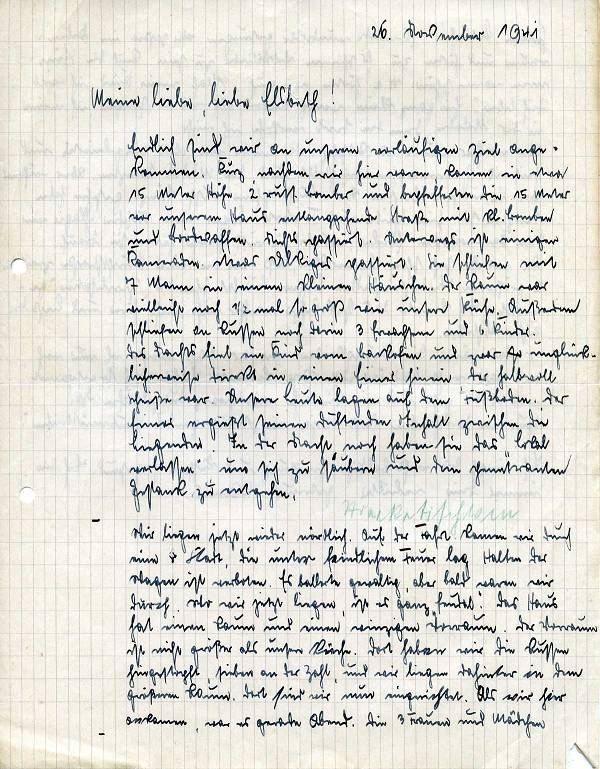 26. November 1941
Meine liebe, liebe Elsbeth!
Endlich sind wir an unserem vorläufigen Ziel ange-
kommen. Kurz nachdem wir hier waren kamen in etwa
15 Meter Höhe 2 russ. Bomber und bepfefferten die 15 Meter
vor unserem Haus entlanggehende Straße mit kl. Bomben
und Bordwaffen. Nichts passiert. Unterwegs ist einigen
Kameraden etwas Ulkiges passiert. Sie schliefen mit
7 Mann in einem kleinen Häuschen. Der Raum war
vielleicht noch 1/2 mal so groß wie unsere Küche. Außerdem
schliefen an Russen noch darin 3 Erwachsene und 6 Kinder.
Des Nachts fiel ein Kind vom Backofen und zwar unglück-
licherweise direkt in einen Eimer hinein der halbvoll
Scheiße war. Unsere Leute lagen auf dem Fußboden. Der
Eimer ergießt seinen duftenden Inhalt zwischen die
Liegenden. In der Nacht noch haben sie das "Lokal
verlassen" um sich zu säubern und dem penetranten
Gestank zu entgehen.
Wir liegen jetzt wieder nördlich. Auf der Fahrt kamen wir durch
eine Stadt, die unter feindlichem Feuer lag. Halten der
Wagen ist verboten. Es ballerte gewaltig, aber bald waren wir
durch. Wo wir jetzt liegen, ist es ganz "feudal". Das Haus
hat einen Raum und einen winzigen Vorraum. Der Vorraum
ist nicht größer als unsere Küche. Dort haben wir die Russen
hingestopft, sieben an der Zahl, und wir liegen dahinter in dem
größeren Raum. Dort sind wir nun eingerichtet. Als wir hier
ankamen, war es gerade Abend. Die 3 Frauen und Mädchen